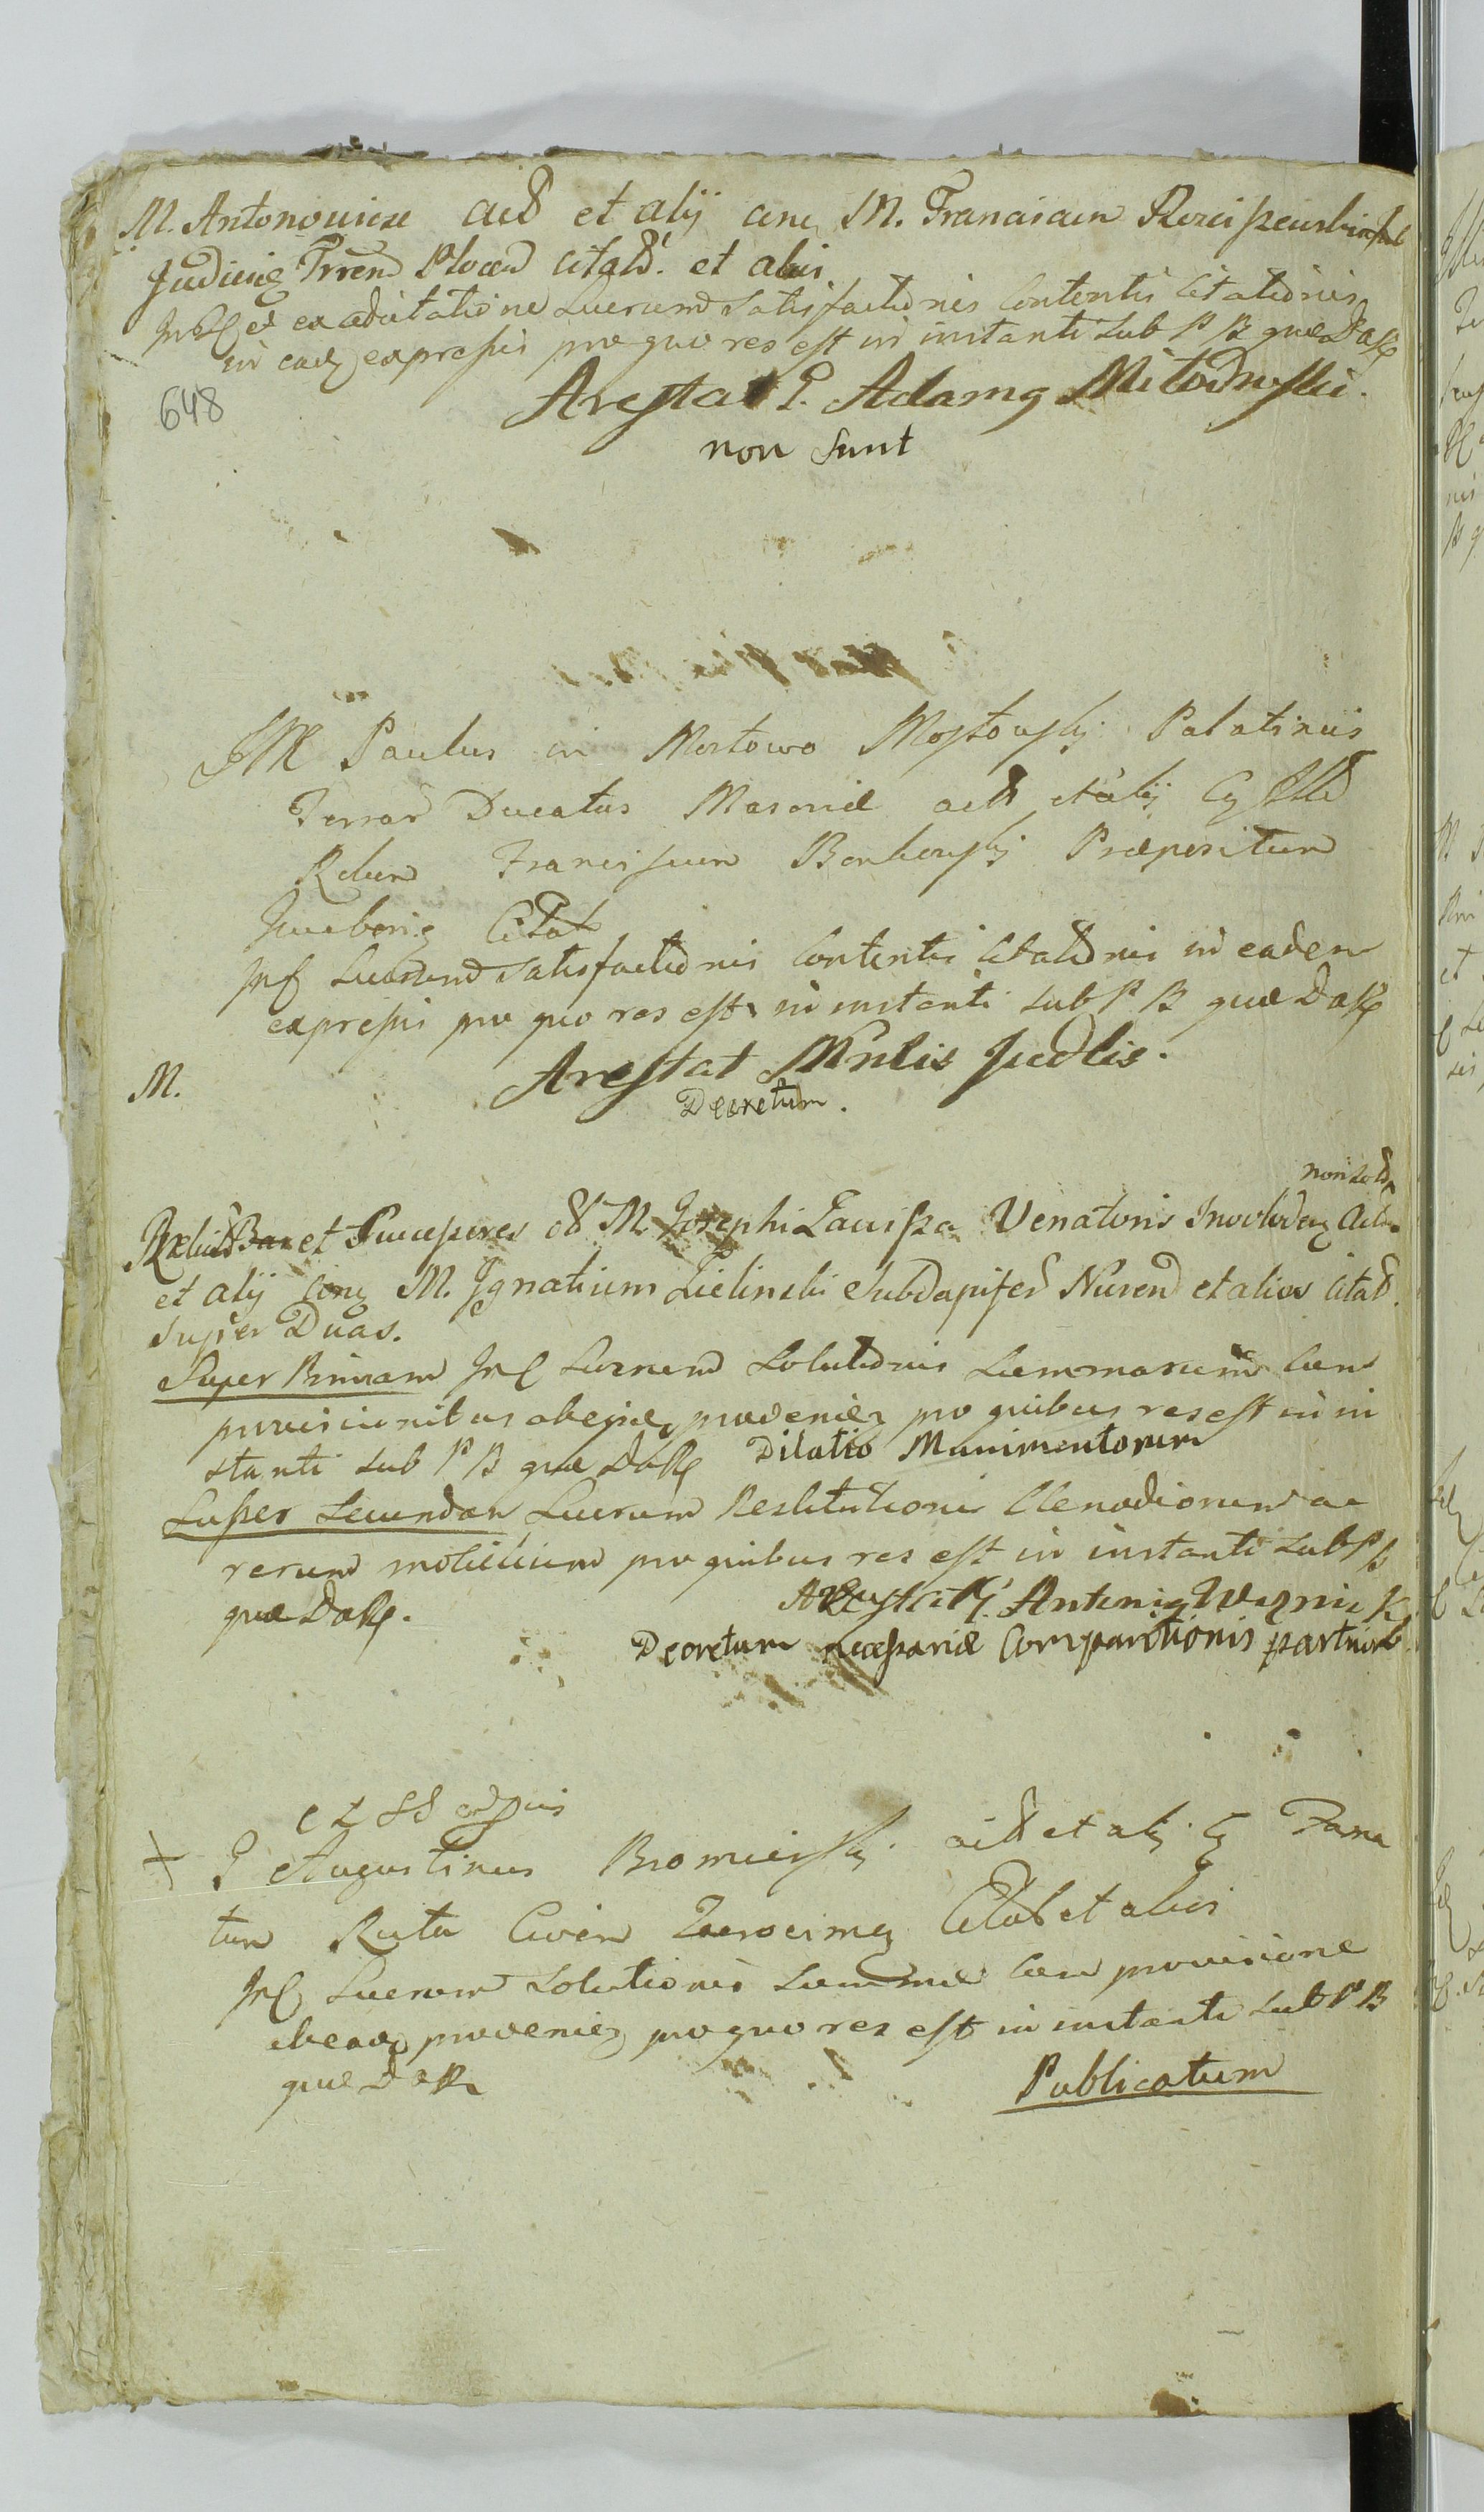 M. Antonouicze actß et alij cm̃ M. Franciscum
Judicuĩ Trren̄ Plocen̄ citatß. et alios
Jnß et ex adcitatione Lucrum̄ satisfactionis contentis citationis
in eadĝ expressis pro quo res est in instanti sub P B quæ Daße
648
Arestat G. Adamg Mitodrvski.
non sunt
JM Paulus in Mostowo Mostowskj Palatinus
Terrar Ducatus Masoviæ actß et alij Cg JllD
Rdum̄ Franciscum Bonkowskj Præpositum̄
Citat
Jnß Lucrum̄ satisfactionis contentis citationis in eadem
expressis pro quo res est in instanti sub P B quæ Daße
Arestat Mnlis Judlis.
M.
Decretum.
non sold
et Successores oß M. Josephi Zawisza Venatoris Inovlodeg Actß
et alij Cong M. Jgnatium Zielinski Subdapiferß Nuren̄ et alios Citatß.
Super Duas.
Super Primam Jnß Lucrum̄ solutionis summarum cum
provisionibus abeisdeg proveniēn pro quibus res est in in
stanti sub P B quæ Daße Dilatio Munimentorum
Super Secundam Lucrum Restitutionis Clenodiorum ac
rerum mobilium pro quibus res est in instanti sub P B
quæ Daße.
Arestat G. Antonig Wazniak
Decretum necessariæ Comparitionis partium
+ G Augustinus Bromierskj actß et alij Cg Fama
tum Ruta Civem Citatß et alios
Jnß Lucrum solutionis summæ cum provisione
abeadg proveniēn pro quo res est in instanti sub P B
quæ Daße
Publicatum